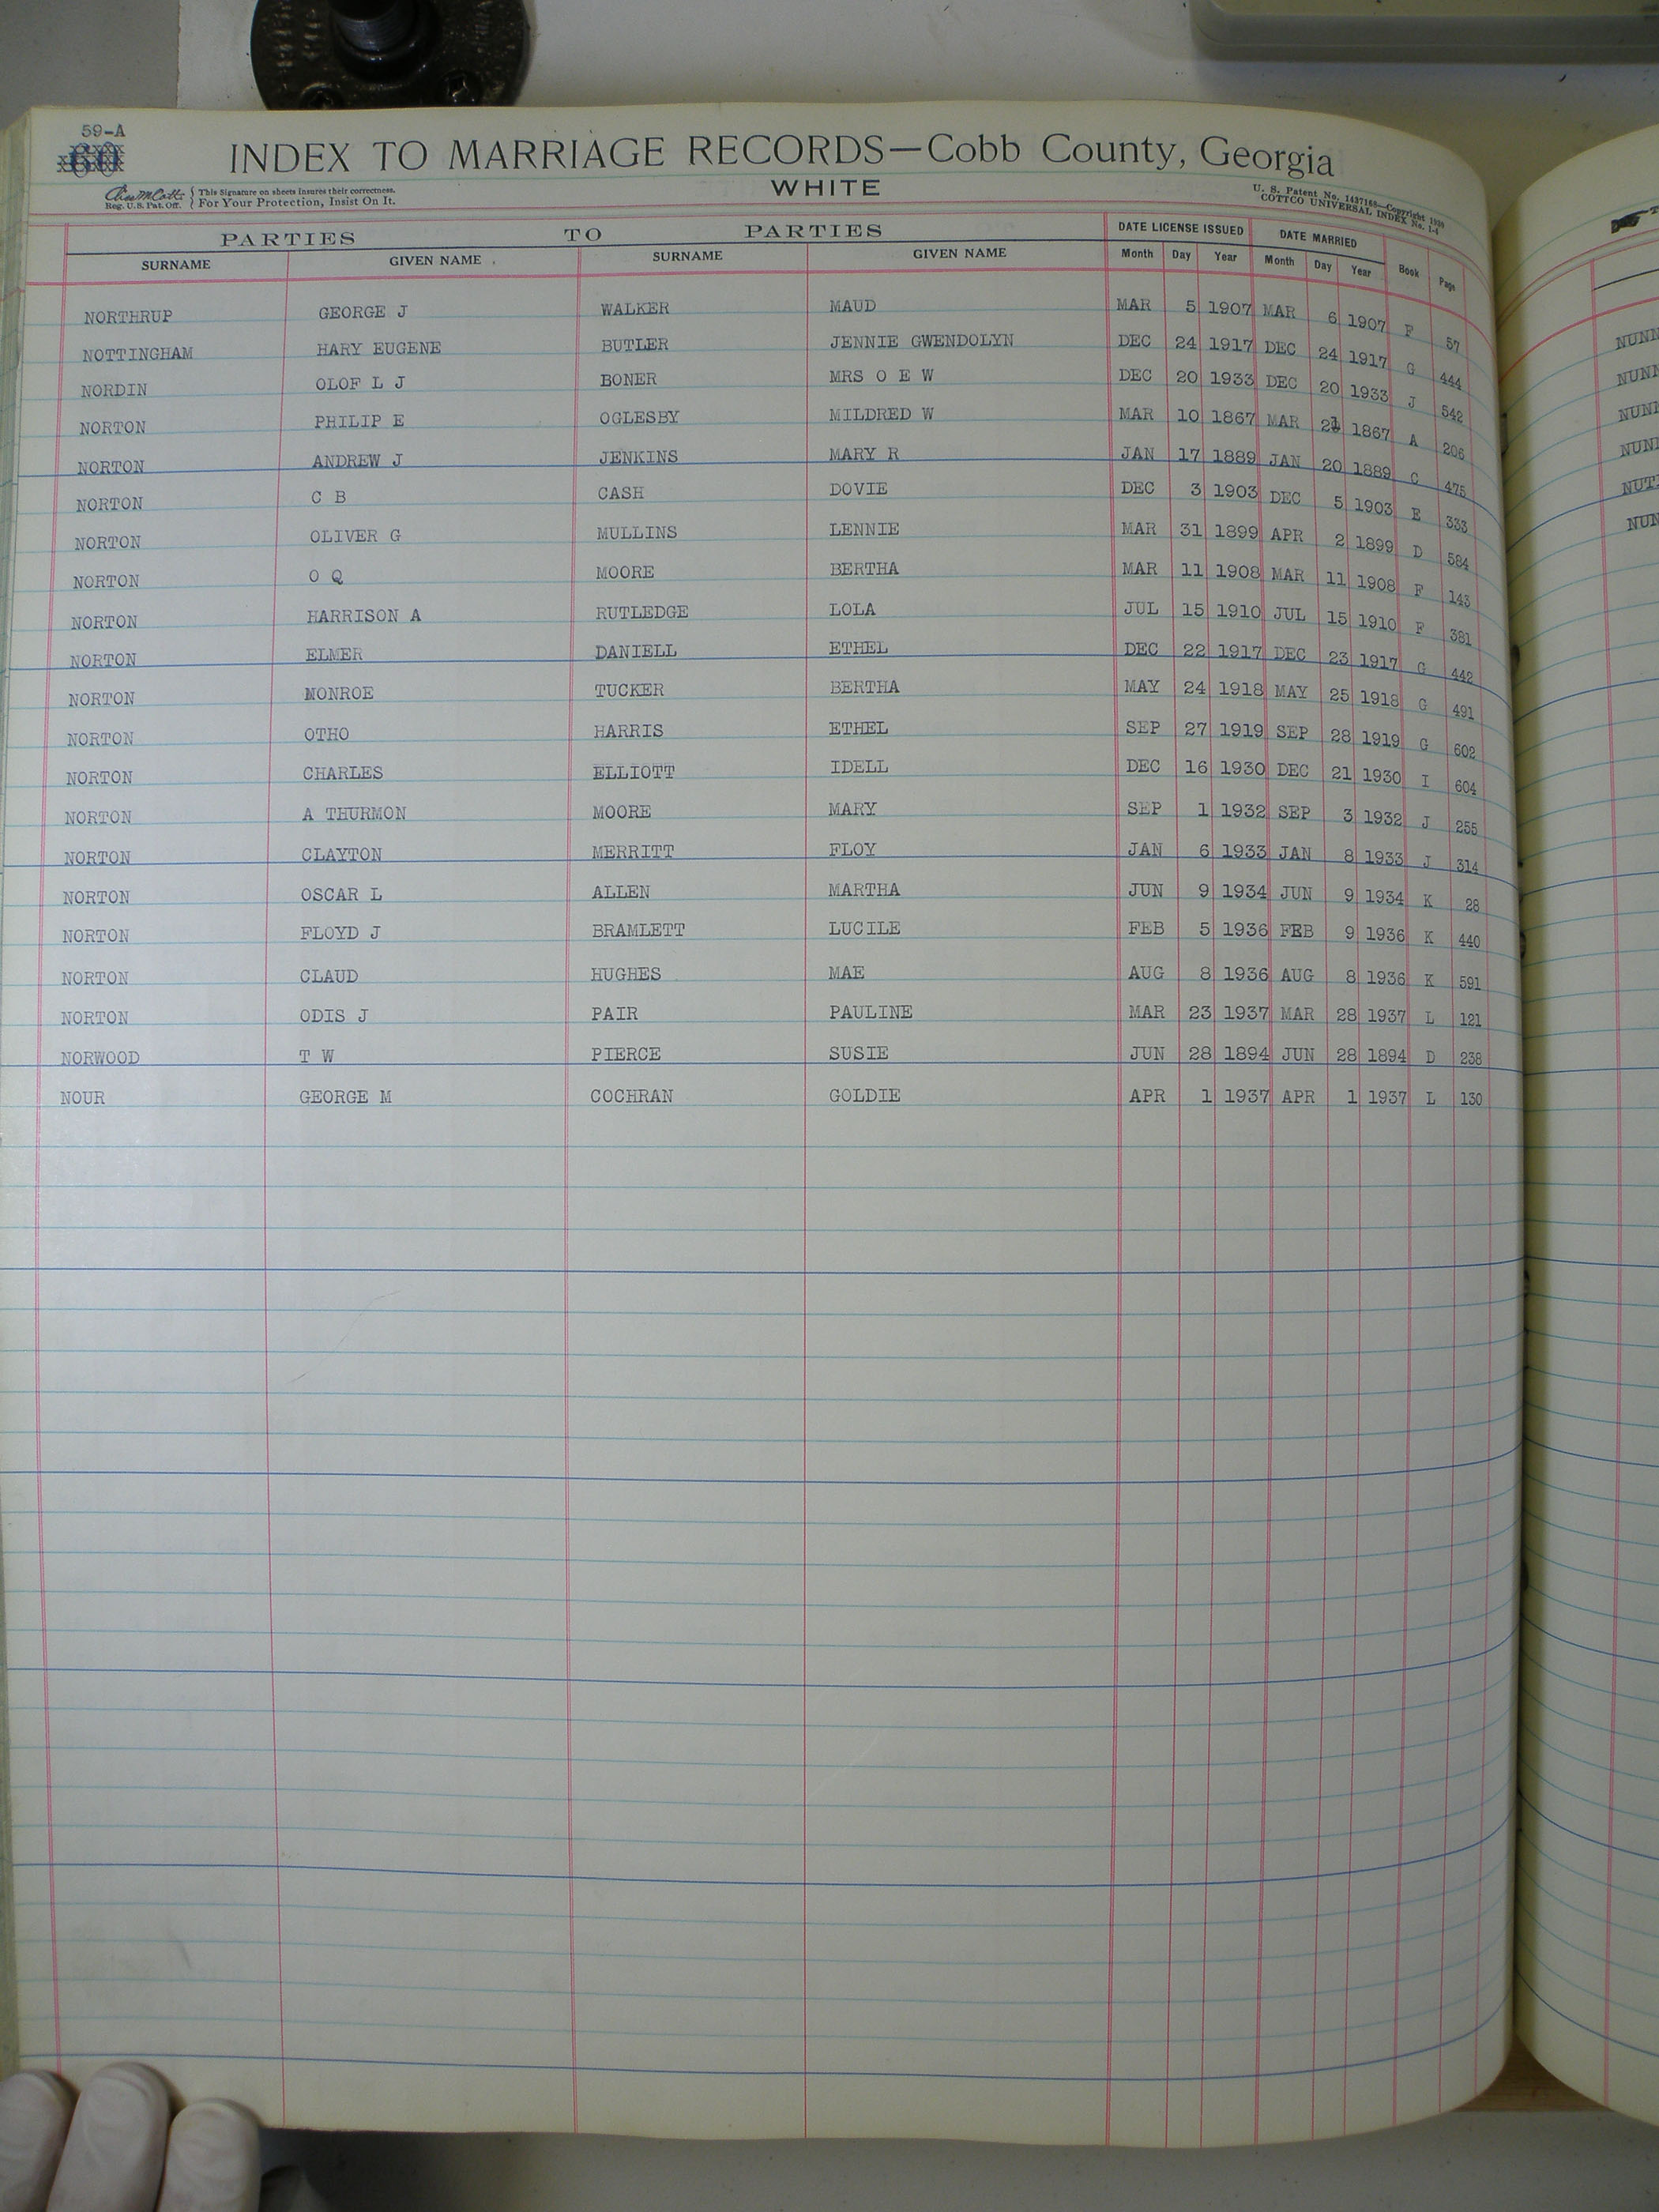 59-A
INDEX TO MARRIAGE RECORDS—Cobb County, Georgia
WHITE
Reg. U.S. Pat. Off. { This Signature on sheets insures their correctness. For Your Protection, Insist On It.
U. S. Patent No. 1437168—Copyright
COTTCO UNIVERSAL INDEX No. 1-4
PARTIES TO PARTIES DATE LICENSE ISSUED DATE MARRIED Book Page
SURNAME GIVEN NAME SURNAME GIVEN NAME Month Day Year Month Day Year
NORTHRUP GEORGE J WALKER MAUD MAR 5 1907 MAR 6 1907 F 57
NOTTINGHAM HARY EUGENE BUTLER JENNIE GWENDOLYN DEC 24 1917 DEC 24 1917 G 444
NORDIN OLOF L J BONER MRS O E W DEC 20 1933 DEC 20 1933 J 542
NORTON PHILIP E OGLESBY MILDRED W MAR 10 1867 MAR 1867 A 206
NORTON ANDREW J JENKINS MARY R JAN 17 1889 JAN 20 1889 C 475
NORTON C B CASH DOVIE DEC 3 1903 DEC 5 1903 E 333
NORTON OLIVER G MULLINS LENNIE MAR 31 1899 APR 2 1899 D 584
NORTON O Q MOORE BERTHA MAR 11 1908 MAR 11 1908 F 143
NORTON HARRISON A RUTLEDGE LOLA JUL 15 1910 JUL 15 1910 F 381
NORTON ELMER DANIELL ETHEL DEC 22 1917 DEC 23 1917 G 442
NORTON MONROE TUCKER BERTHA MAY 24 1918 MAY 25 1918 G 491
NORTON OTHO HARRIS ETHEL SEP 27 1919 SEP 28 1919 G 602
NORTON CHARLES ELLIOTT IDELL DEC 16 1930 DEC 21 1930 I 604
NORTON A THURMON MOORE MARY SEP 1 1932 SEP 3 1932 J 255
NORTON CLAYTON MERRITT FLOY JAN 6 1933 JAN 8 1933 J 314
NORTON OSCAR L ALLEN MARTHA JUN 9 1934 JUN 9 1934 K 28
NORTON FLOYD J BRAMLETT LUCILE FEB 5 1936 FEB 9 1936 K 440
NORTON CLAUD HUGHES MAE AUG 8 1936 AUG 8 1936 K 591
NORTON ODIS J PAIR PAULINE MAR 23 1937 MAR 28 1937 L 121
NORWOOD T W PIERCE SUSIE JUN 28 1894 JUN 28 1894 D 238
NOUR GEORGE M COCHRAN GOLDIE APR 1 1937 APR 1 1937 L 130